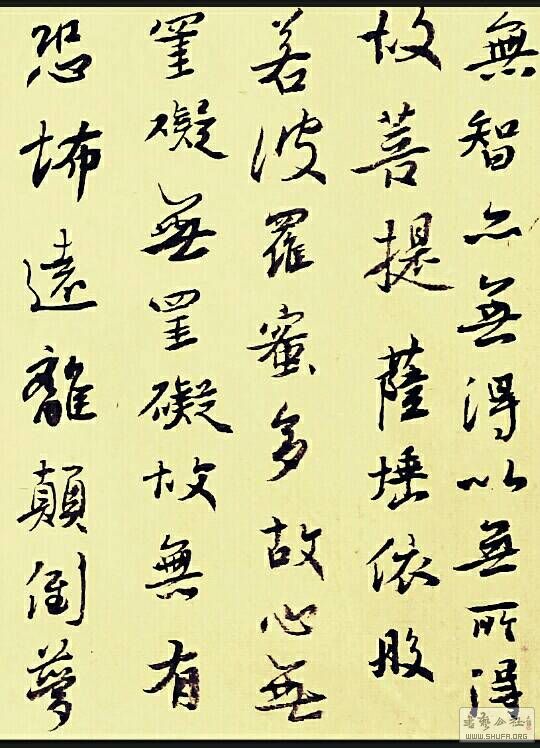 無智亦無得以無所得
故菩提薩埵依般
若波羅蜜多故心無
罣礙無罣礙故無有
恐怖遠離顛倒夢
書藝公社
WWW.SHUFA.ORG